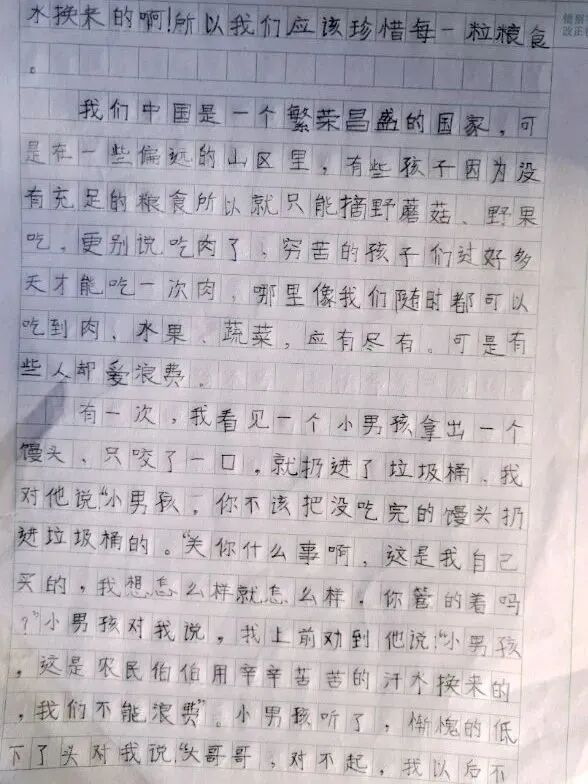 水换来的啊!所以我们应该珍惜每一粒粮食
。
我们中国是一个繁荣昌盛的国家,可
是在一些偏远的山区里,有些孩子因为没
有充足的粮食所以就只能摘野蘑菇、野果
吃,更别说吃肉了,穷苦的孩子们过好多
天才能吃一次肉,哪里像我们随时都可以
吃到肉、水果、蔬菜,应有尽有。可是有
些人却爱浪费。
有一次,我看见一个小男孩拿出一个
馒头、只咬了一口,就扔进了垃圾桶、我
对他说“小男孩,你不该把没吃完的馒头扔
进垃圾桶的。“关你什么事啊,这是我自己
买的,我想怎么样就怎么样,你管的着吗
?”小男孩对我说,我上前劝到他说:“小男孩
,这是农民伯伯用辛辛苦苦的汗水换来的
,我们不能浪费”。小男孩听了,惭愧的低
下了头对我说“大哥哥,对不起,我以后不